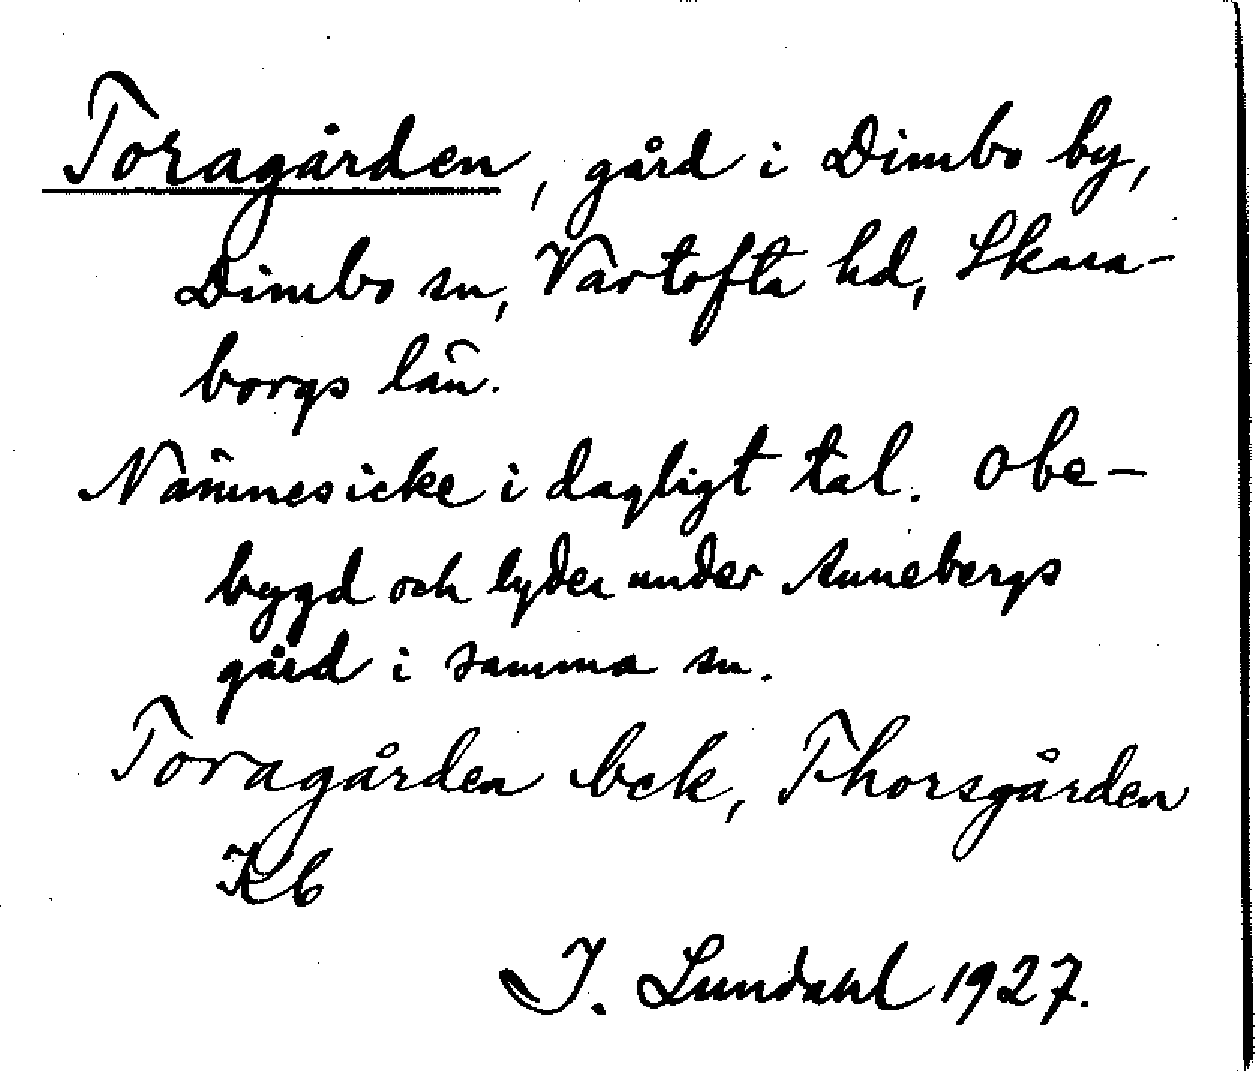 Toragården, gård i Dimbo by,
Dimbo sn, Vartofta hd, Skara-
borgs län.
Nämnes icke i dagligt tal. Obe-
bygd och lyder under Annebergs
gård i samma sn.
Toragården bek, Thorsgården
Kb
I. Lundahl 1927.